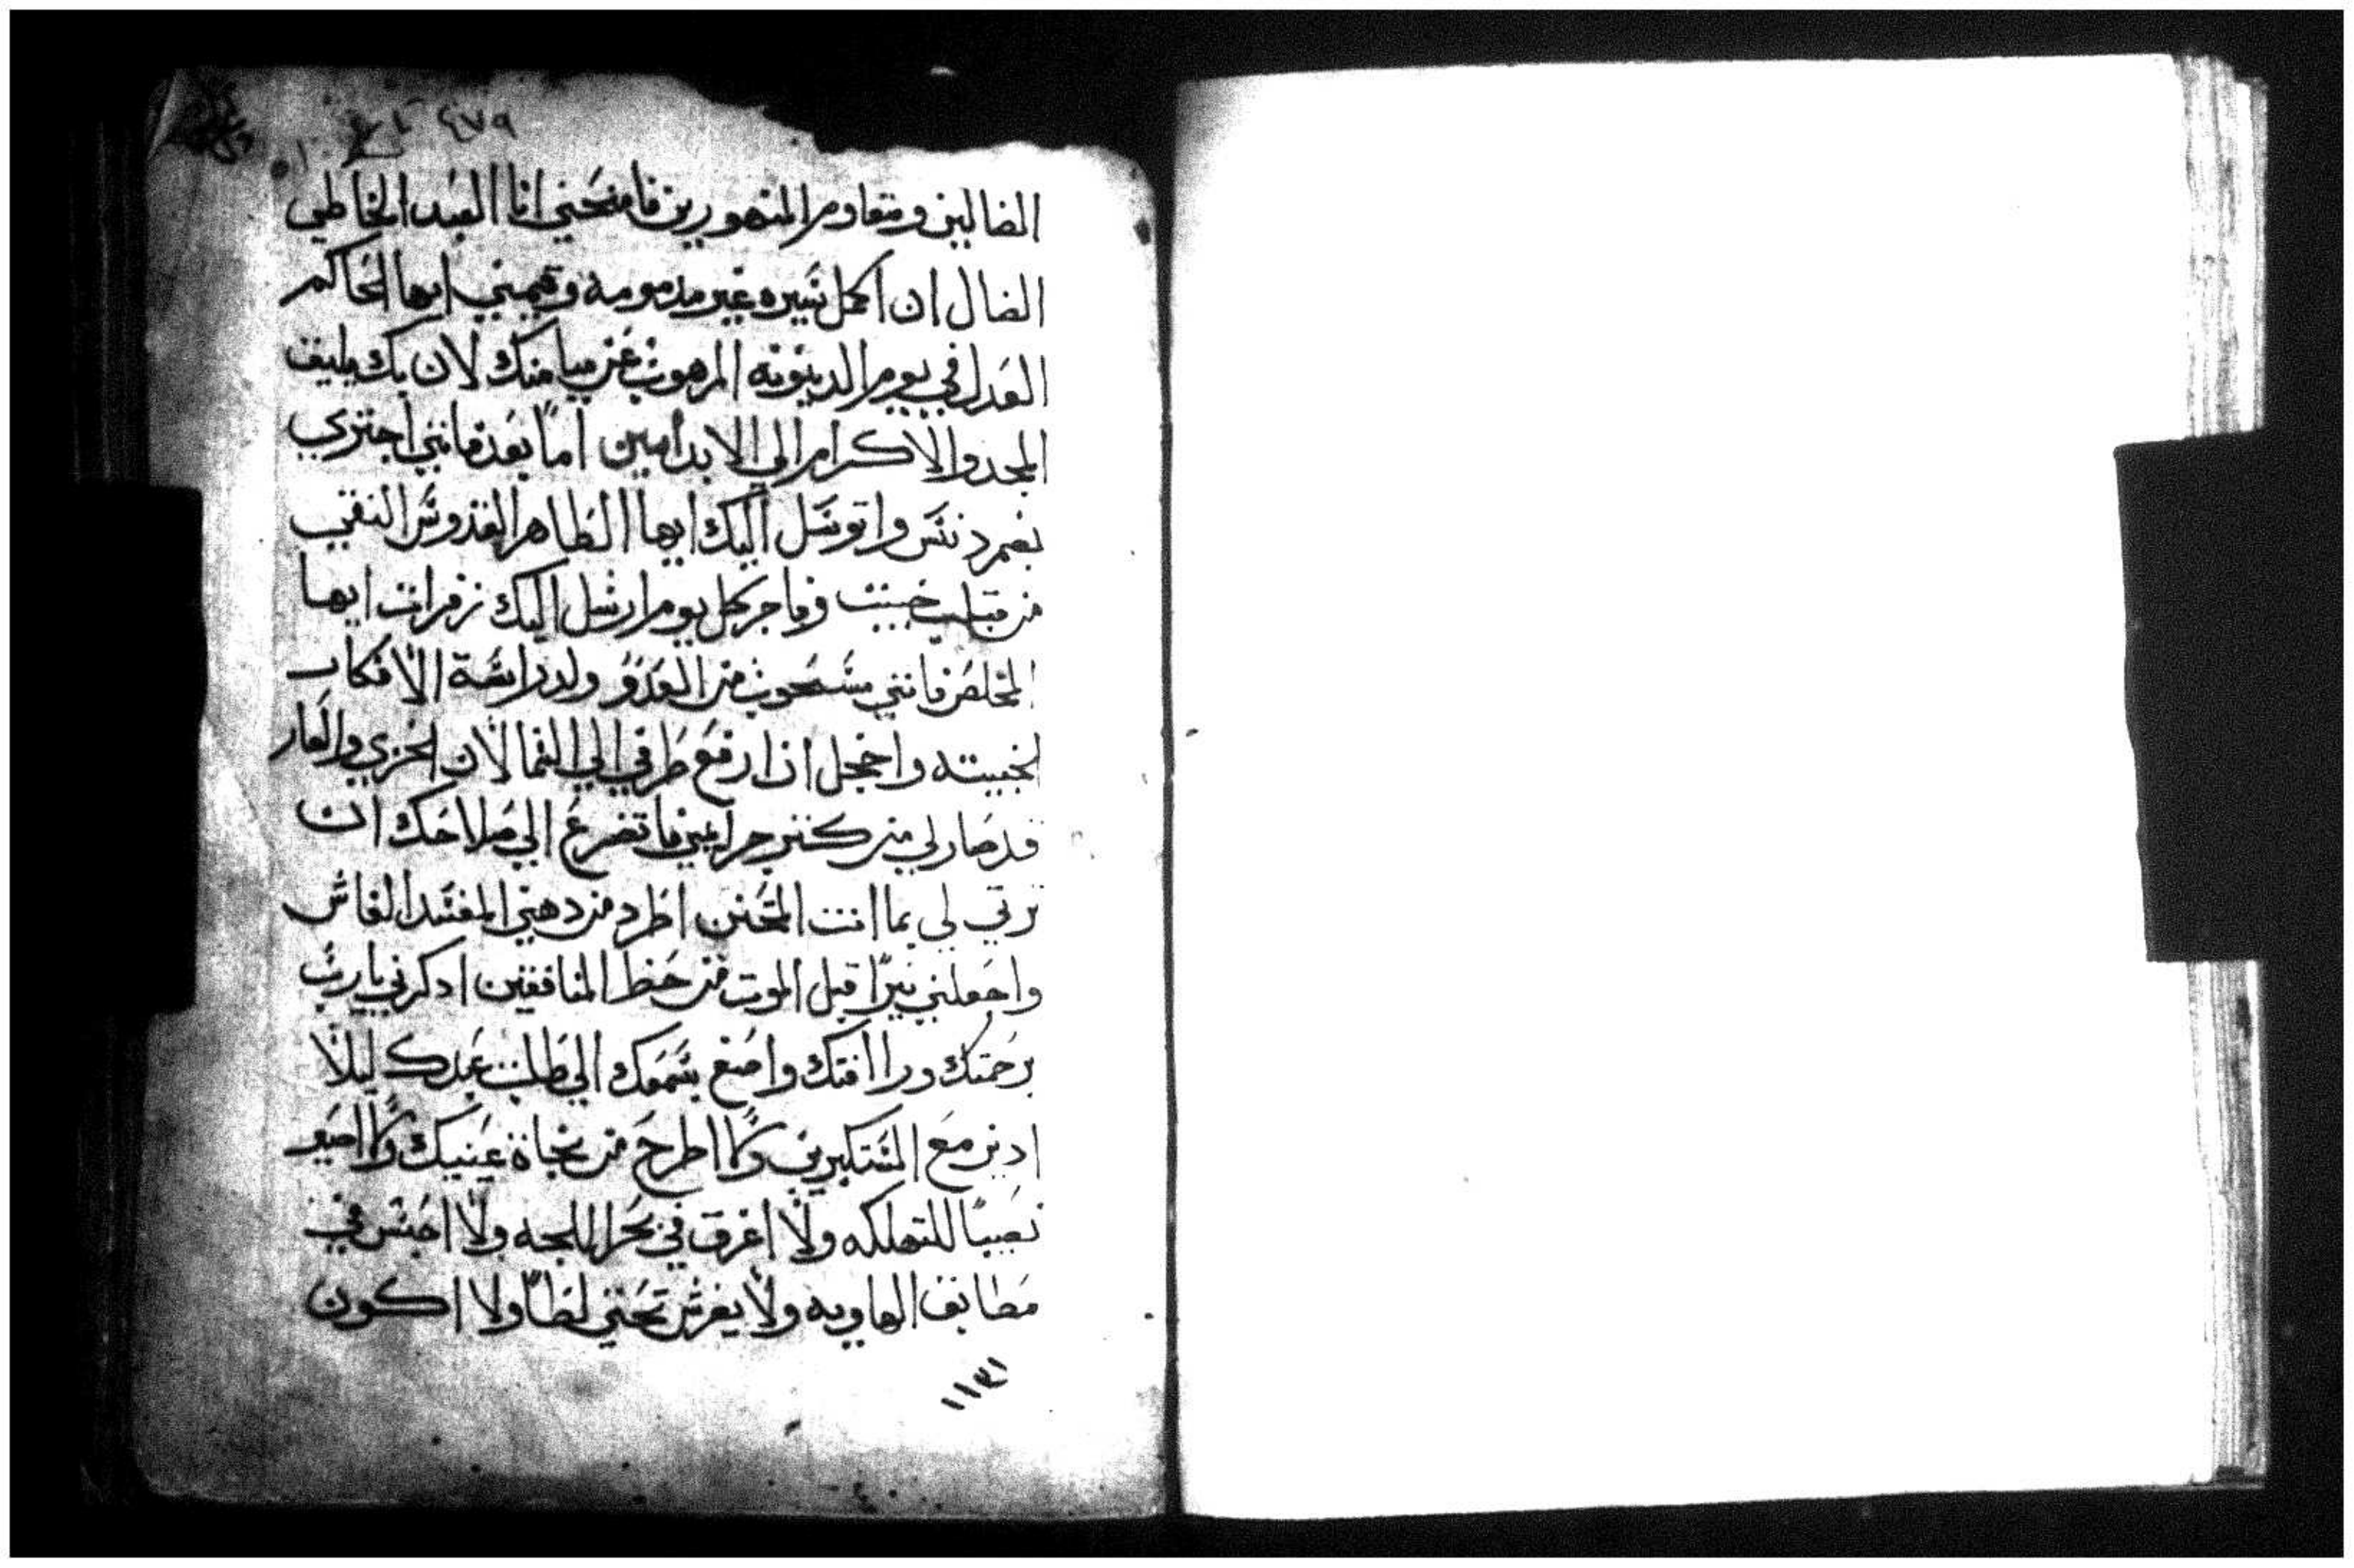 ٤٧٩
الضالين ومقاوم المتهورين فامنحني انا العبد الخاطي
الضال ان اكمل سيره غير مدمومه وقيمني ايها الحاكم
العدل في يوم الدينونه المرهوب عن ميامنك لان بك يليق
المجد والاكرام الي الابد امين اما بعد فانني اجتري
بضمير دنس واتوسل اليك ايها الطاهر القدوس النقي
من قلب خبيث وفاجر كل يوم ارسل اليك زفرات ايها
المخلص فانني مسحوب من العدو ولدراسة الافكار
الخبيته واخجل ان ارفع طرفي الي السما لان الخزي والعار
قد صار لي من كنز جرايمي فاتضرع الي صلاحك ان
ترتي لي بما انت المتحنن اطرد من دهني المفسد الغاش
واجعلني نيرا قبل الموت من حظ المنافقين ادكرني يارب
برحمتك وراافتك واصغ بسمعك الي طلبت عبدك ليلا
ادين مع المستكبرين ولا اطرح من تجاة عينيك ولا اصير
نصيبا للتهلكه ولا اغرق في بحر اللجه ولا احبس في
مطابق الهاويه ولا يفرش تحتي لظا ولا اكون